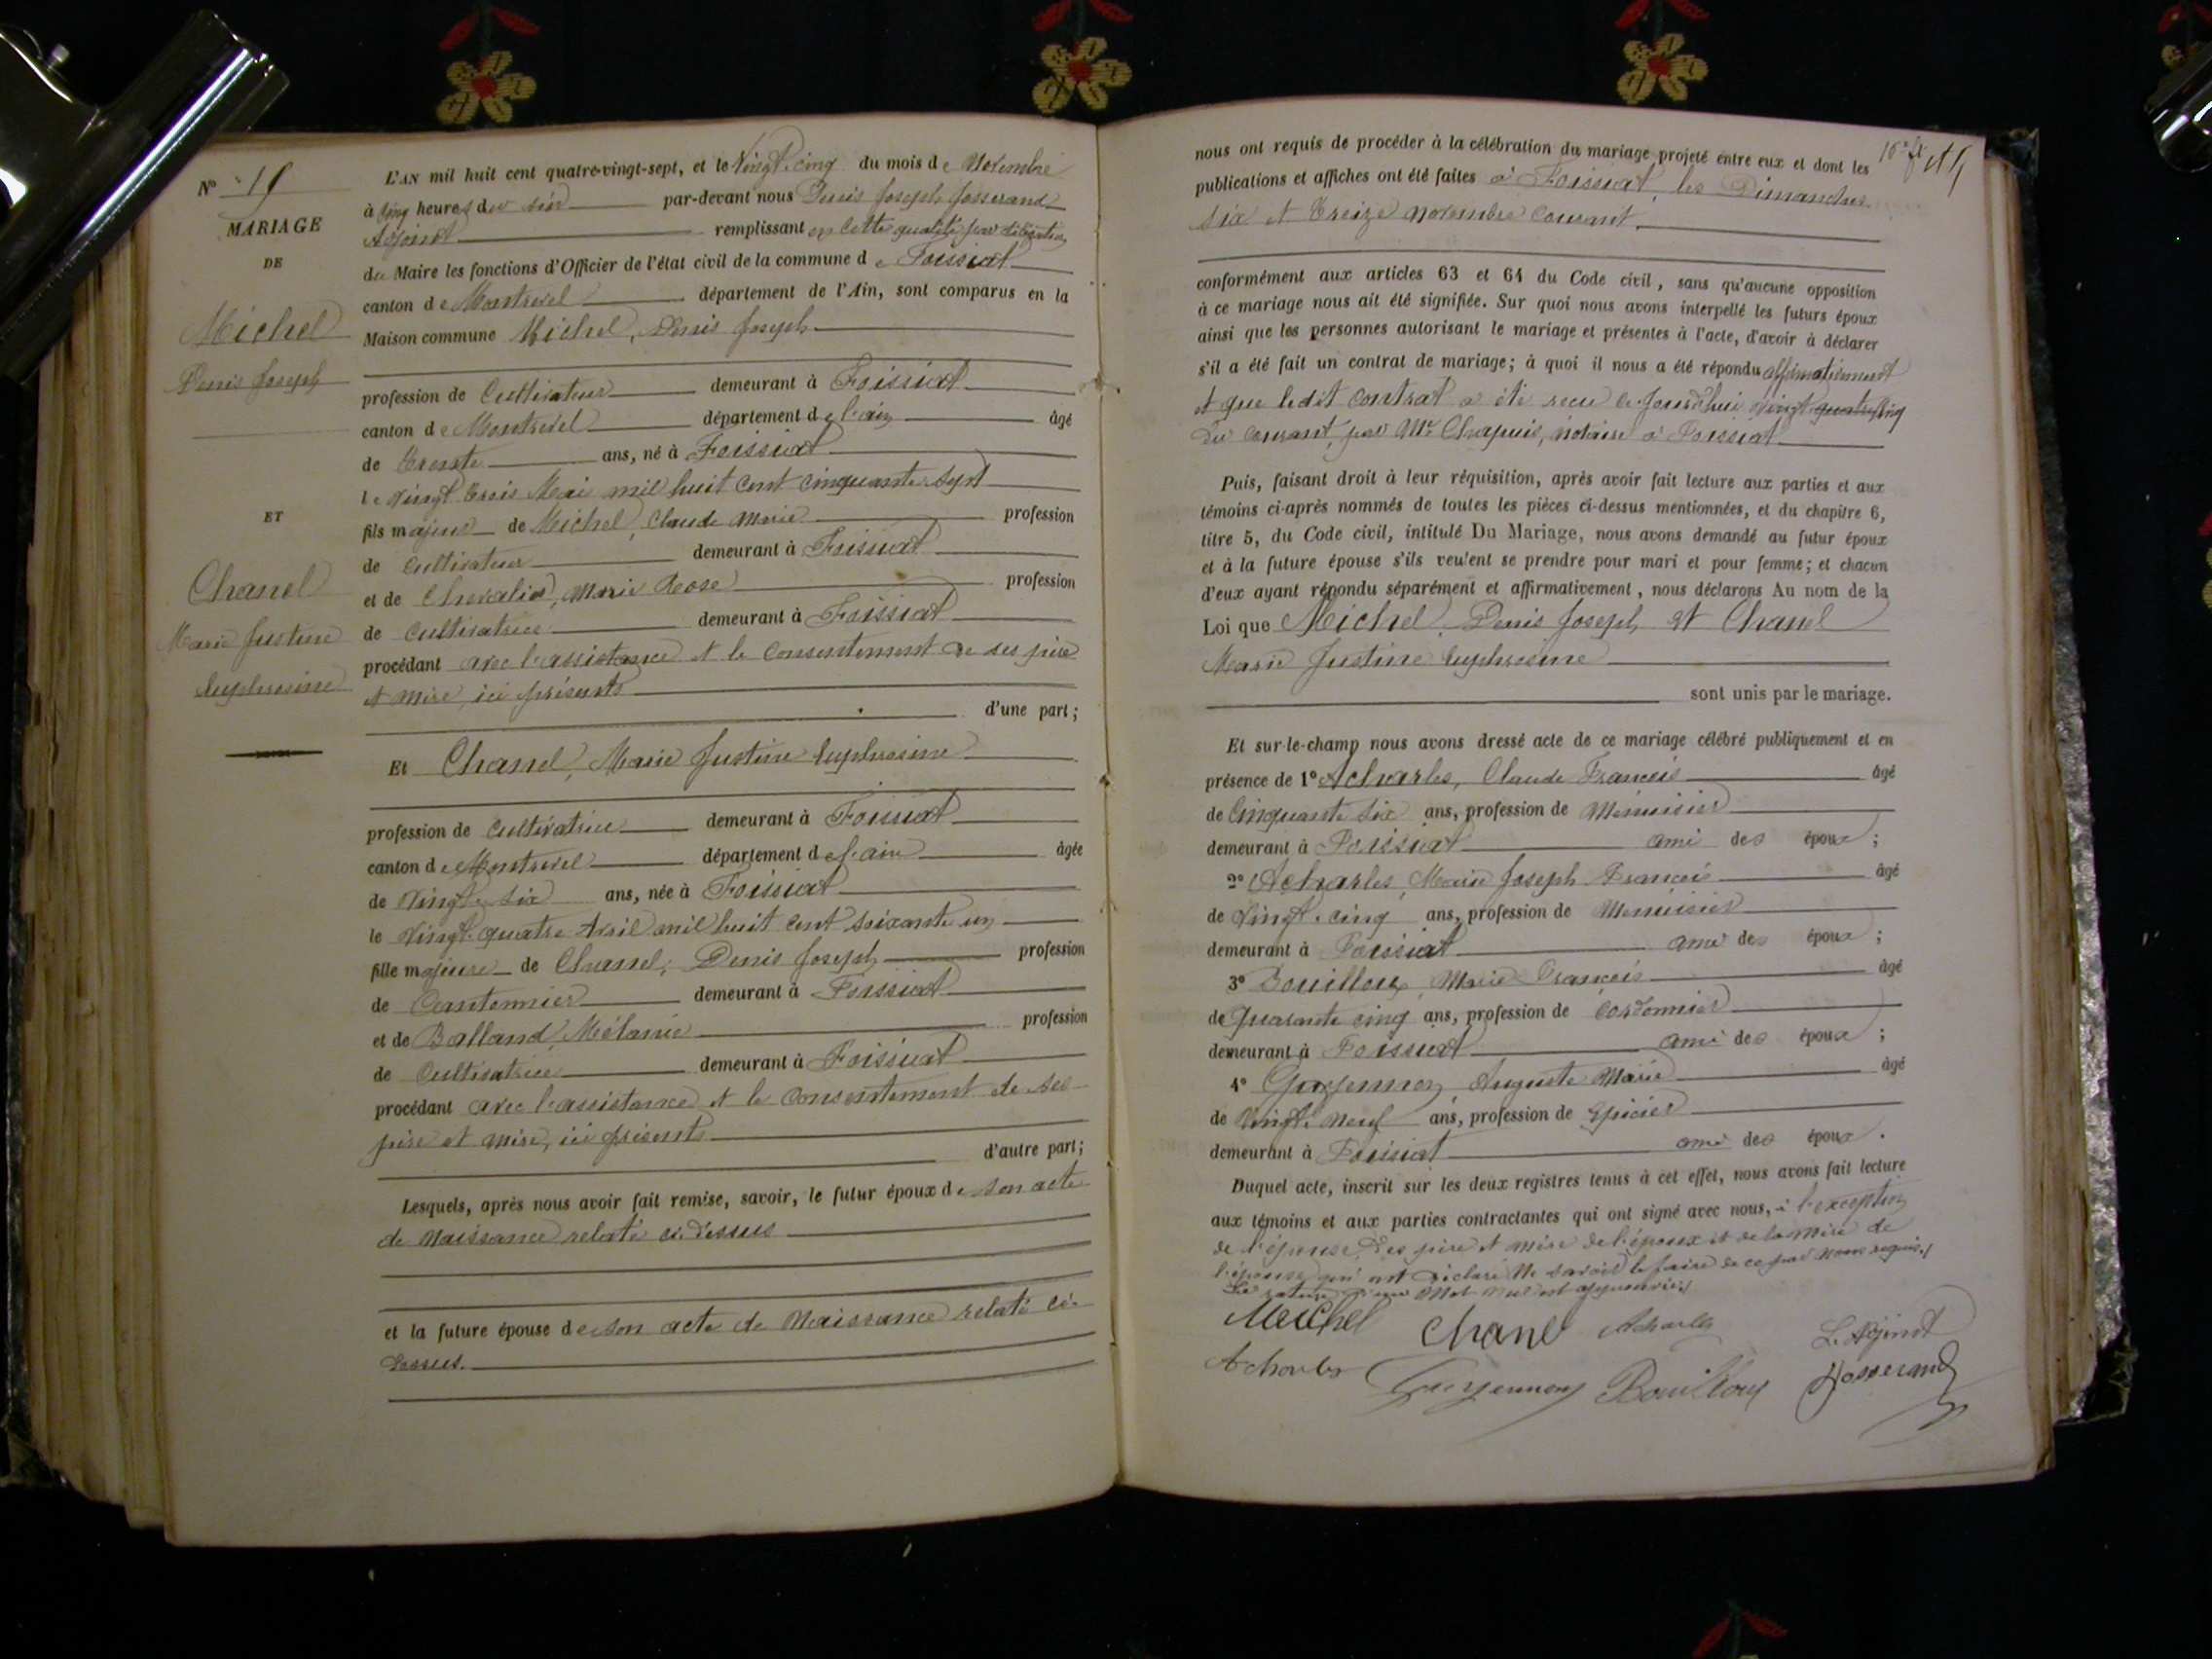 N° 15
MARIAGE
DE
Michel
Denis Joseph
ET
Chanel
Marie Justine
Euphrosine
L'AN mil huit cent quatre-vingt-sept, et le Vingt-cinq du mois de Novembre
à cinq heures du soir par-devant nous Denis Joseph Josserand
Adjoint remplissant en cette qualité par délégation
du Maire les fonctions d'Officier de l'état civil de la commune de Foissiat
canton de Montrevel département de l'Ain, sont comparus en la
Maison commune Michel, Denis Joseph
profession de Cultivateur demeurant à Foissiat
canton de Montrevel département de l'ain âgé
de trente ans, né à Foissiat
le vingt trois Mai mil huit cent cinquante sept
fils majeur de Michel, Claude Marie profession
de Cultivateur demeurant à Foissiat
et de Chevalier, Marie Rose profession
de cultivatrice demeurant à Foissiat
procédant avec l'assistance et le consentement de ses père
et mère, ici présents
d'une part;
Et Chanel, Marie Justine Euphrosine
profession de cultivatrice demeurant à Foissiat
canton de Montrevel département de l'ain âgée
de Vingt-six ans, née à Foissiat
le Vingt-quatre Avril mil huit cent soixante un
fille majeure de Chanel, Denis Joseph profession
de Cantonnier demeurant à Foissiat
et de Balland, Mélanie profession
de Cultivatrice demeurant à Foissiat
procédant avec l'assistance et le consentement de ses
père et mère, ici présents
d'autre part;
Lesquels, après nous avoir fait remise, savoir, le futur époux de son acte
de Naissance relaté ci-dessus
et la future épouse de son acte de Naissance relaté ci-
dessus.
nous ont requis de procéder à la célébration du mariage projeté entre eux et dont les
publications et affiches ont été faites à Foissiat, les Dimanches
six et treize novembre courant.
conformément aux articles 63 et 64 du Code civil, sans qu'aucune opposition
à ce mariage nous ait été signifiée. Sur quoi nous avons interpellé les futurs époux
ainsi que les personnes autorisant le mariage et présentes à l'acte, d'avoir à déclarer
s'il a été fait un contrat de mariage; à quoi il nous a été répondu affirmativement
et que ledit contrat a été reçu ce jourd'hui vingt quatre cinq
du courant, par Me Chapuis, notaire à Foissiat
Puis, faisant droit à leur réquisition, après avoir fait lecture aux parties et aux
témoins ci-après nommés de toutes les pièces ci-dessus mentionnées, et du chapitre 6,
titre 5, du Code civil, intitulé Du Mariage, nous avons demandé au futur époux
et à la future épouse s'ils veulent se prendre pour mari et pour femme; et chacun
d'eux ayant répondu séparément et affirmativement, nous déclarons Au nom de la
Loi que Michel, Denis Joseph et Chanel
Marie Justine Euphrosine
sont unis par le mariage.
Et sur-le-champ nous avons dressé acte de ce mariage célébré publiquement et en
présence de 1° Acharles, Claude François âgé
de Cinquante six ans, profession de Menuisier
demeurant à Foissiat ami des époux;
2° Acharles, Marie Joseph François âgé
de Vingt-cinq ans, profession de Menuisier
demeurant à Foissiat ami des époux;
3° Bouilloux, Marie François âgé
de Quarante cinq ans, profession de Cordonnier
demeurant à Foissiat ami des époux;
4° Guyennon, Auguste Marie âgé
de Vingt-neuf ans, profession de Epicier
demeurant à Foissiat ami des époux.
Duquel acte, inscrit sur les deux registres tenus à cet effet, nous avons fait lecture
aux témoins et aux parties contractantes qui ont signé avec nous, à l'exception
de l'épouse, des père et mère de l'époux et de la mère de
l'épouse qui ont déclaré ne savoir le faire de ce par nous requis./
La rature d'un mot nul est approuvée./
Michel Chanel Acharles L'Adjoint
Acharles Guyennon Bouilloux Josserand